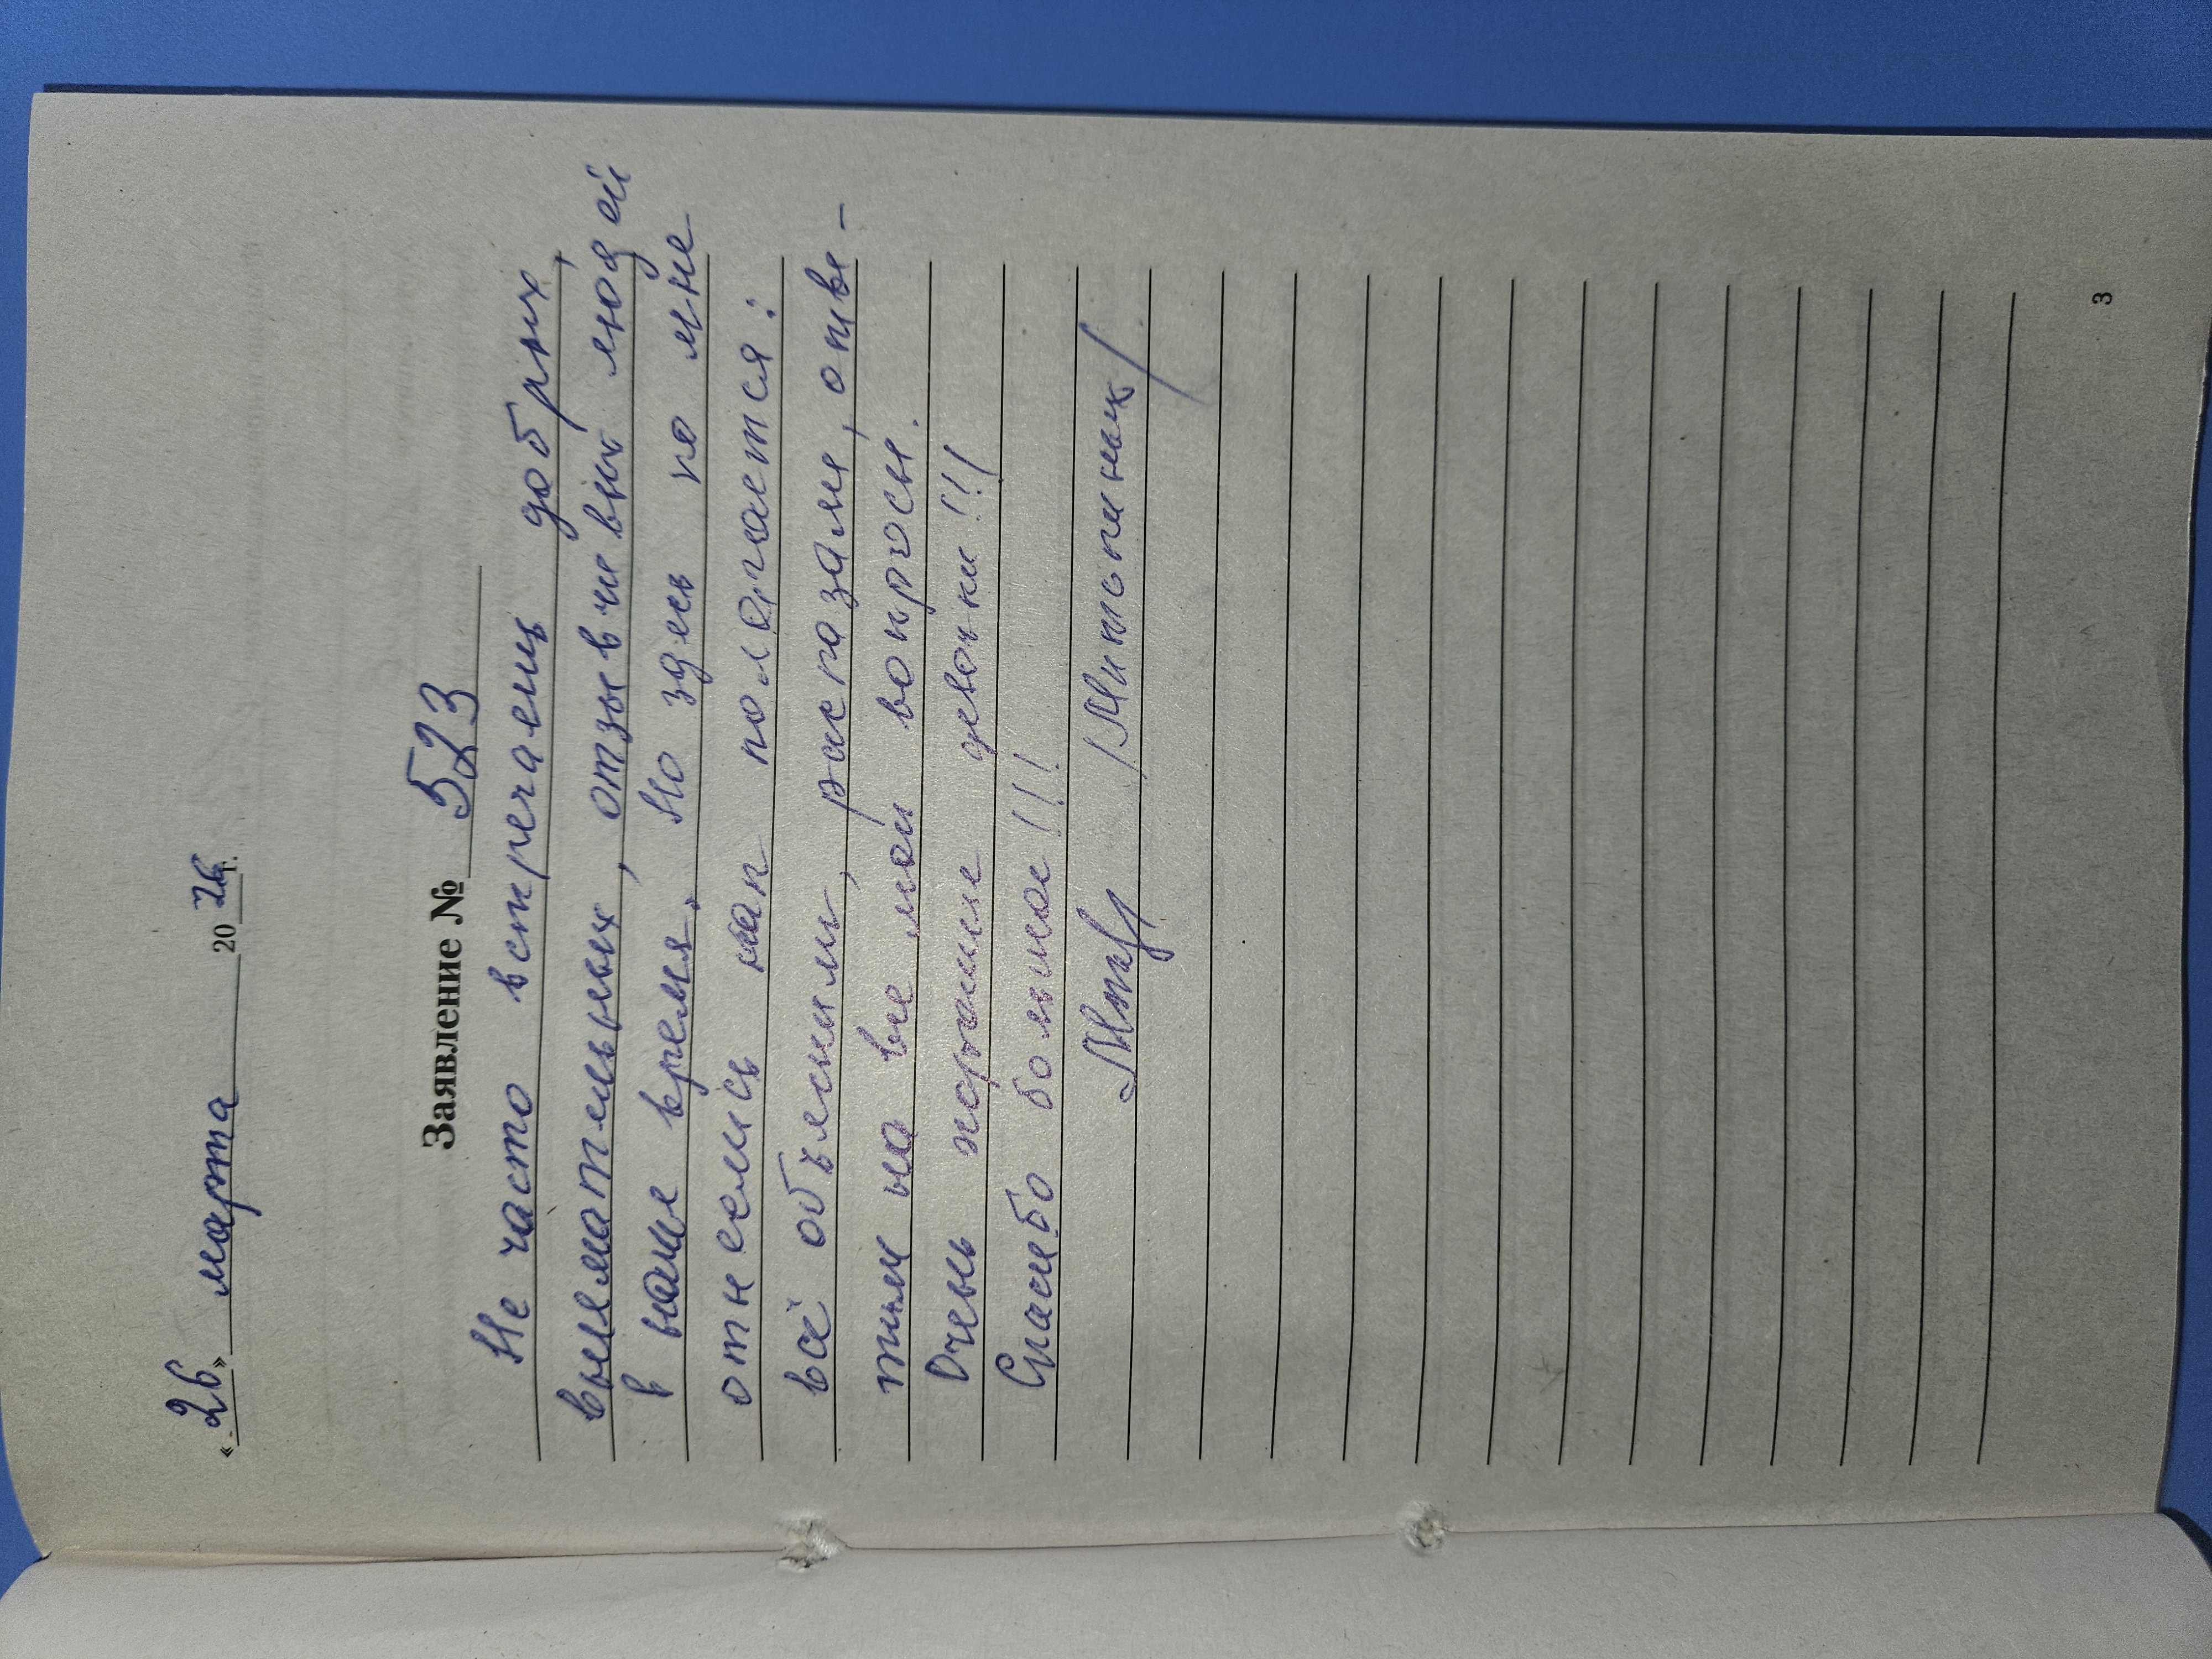 «26» марта 2026 г.
Заявление № 523
Не часто встречаешь добрых,
внимательных, отзывчивых людей
в наше время. Но здесь ко мне
отнеслись как полагается:
всё объяснили, рассказали, отве-
тили на все мои вопросы.
Очень хорошие девочки!!!
Спасибо большое!!!
3